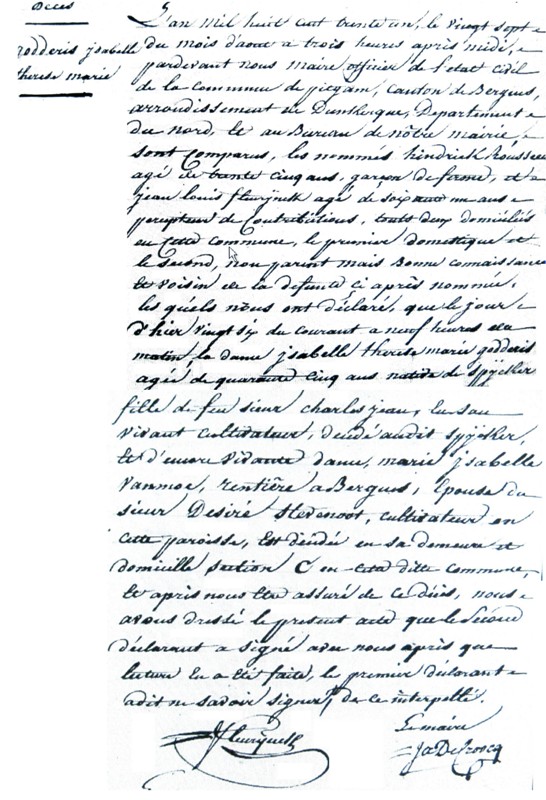 Décès
godderis jsabelle
therese marie
L'an mil huit cent trente un, le vingt sept
du mois d'aout a trois heures après midi,
pardevant nous maire officier de l'état civil
de la Commune de pitgam, Canton de Bergues,
arrondissement de Dunkerque, Département
du nord, et au Bureau de nôtre mairie,
sont comparus, les nommés hindrick
agé de trente cinq ans, garçon de ferme, et
jean louis fleurÿnck agé de soixante me ans
percepteur de Contributions, touts deux domiciliés
en cette commune, le premier domestique et
le second, non parent mais Bonne connaissance
et voisin de la defunte ci après nommée,
les quéls nous ont déclaré, que le jour
d'hier vingt six du courant a neuf heures du
matin, la dame jsabelle therese marie godderis
agée de quarante cinq ans native de spÿcker
fille de feu sieur charles jean, en son
vivant cultivateur, décédé audit spÿcker,
et d'encore vivante dame, marie jsabelle
vanmoe, rentière a Bergues, Epouse du
sieur Desiré Stevenoot, cultivateur en
cette paroisse, est décédée en sa demeure et
domicille section C en cette ditte commune,
et après nous être assuré de ce décés, nous
avons dressé le present acte que le second
déclarant a signé avec nous après que
lecture en a été faite, le premier déclorant
a dit ne savoir signer, de ce interpellé.
Le maire
fleurÿnck